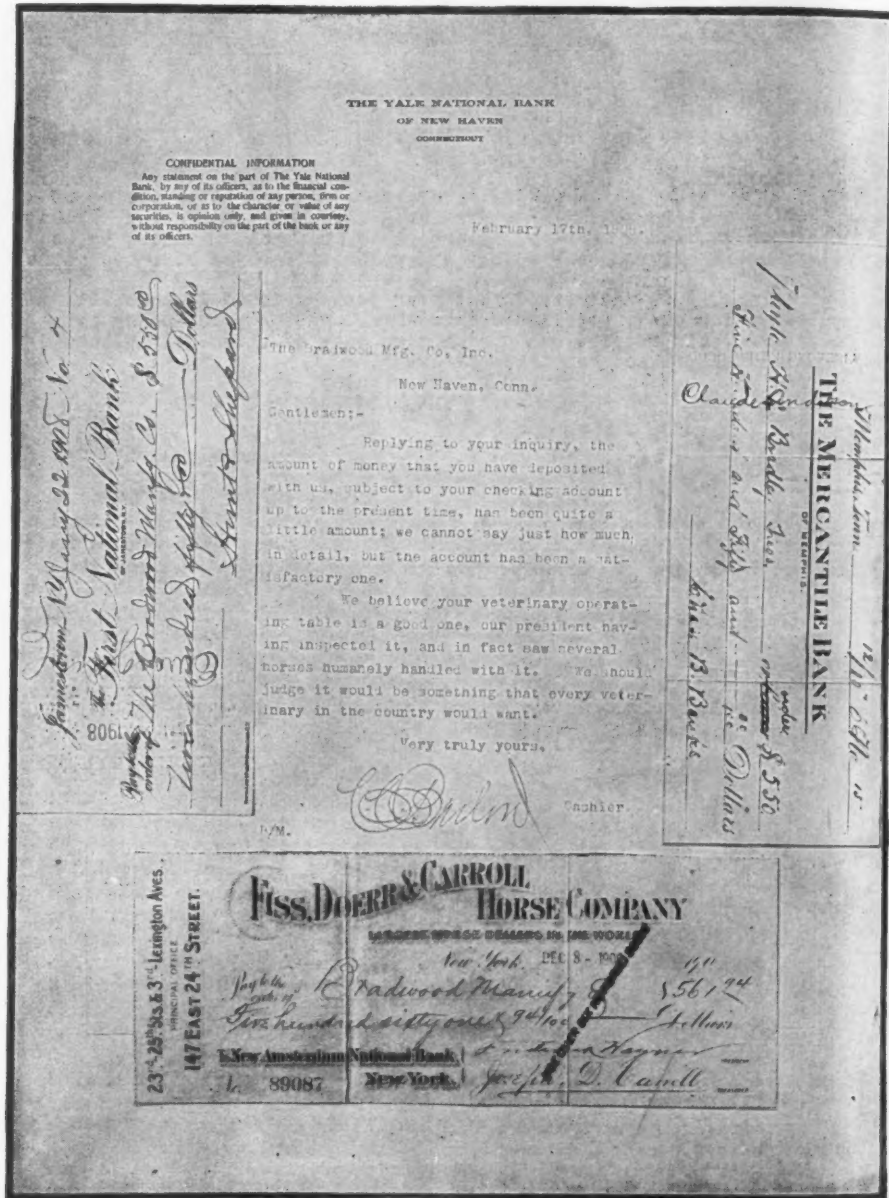 THE YALE NATIONAL BANK
OF NEW HAVEN
CONNECTICUT
CONFIDENTIAL INFORMATION
Any statement on the part of The Yale National
Bank, by any of its officers, as to the financial con-
dition, standing or reputation of any person, firm or
corporation, or as to the character or value of any
securities, is opinion only, and given in courtesy,
without responsibility on the part of the bank or any
of its officers.
February 17th,
The Bradwood Mfg. Co, Inc.
New Haven, Conn.
Gentlemen:-
Replying to your inquiry, the
amount of money that you have deposited
with us, subject to your checking account
up to the present time, has been quite a
little amount; we cannot say just how much,
in detail, but the account has been a sat-
isfactory one.
We believe your veterinary operat-
ing table is a good one, our president hav-
ing inspected it, and in fact saw several
horses humanely handled with it. We should
judge it would be something that every veter-
inary in the country would want.
Very truly yours,
Cashier.
B/M.
Jamestown, N.Y. Jany 22 1908 No. 4
The First National Bank
OF JAMESTOWN, N.Y.
Pay to the order of The Bradwood Manfg. Co. $ 550 00
Five hundred fifty Dollars
Shepard
1908
Memphis, Tenn
THE MERCANTILE BANK
OF MEMPHIS.
or order $ 550
Five Hundred and Fifty and Dollars
Claude
B. Banks
23rd-25th Sts. & 3rd-Lexington Aves.
PRINCIPAL OFFICE
147 EAST 24TH STREET.
FISS, DOERR & CARROLL
HORSE COMPANY
LARGEST HORSE DEALERS IN THE WORLD
New York, DEC 8 - 190
Pay to the order of Bradwood Manufg Co $561 94
Five hundred sixty one & 94/100 Dollars
New Amsterdam National Bank,
New York
89087
Joseph D. Carroll